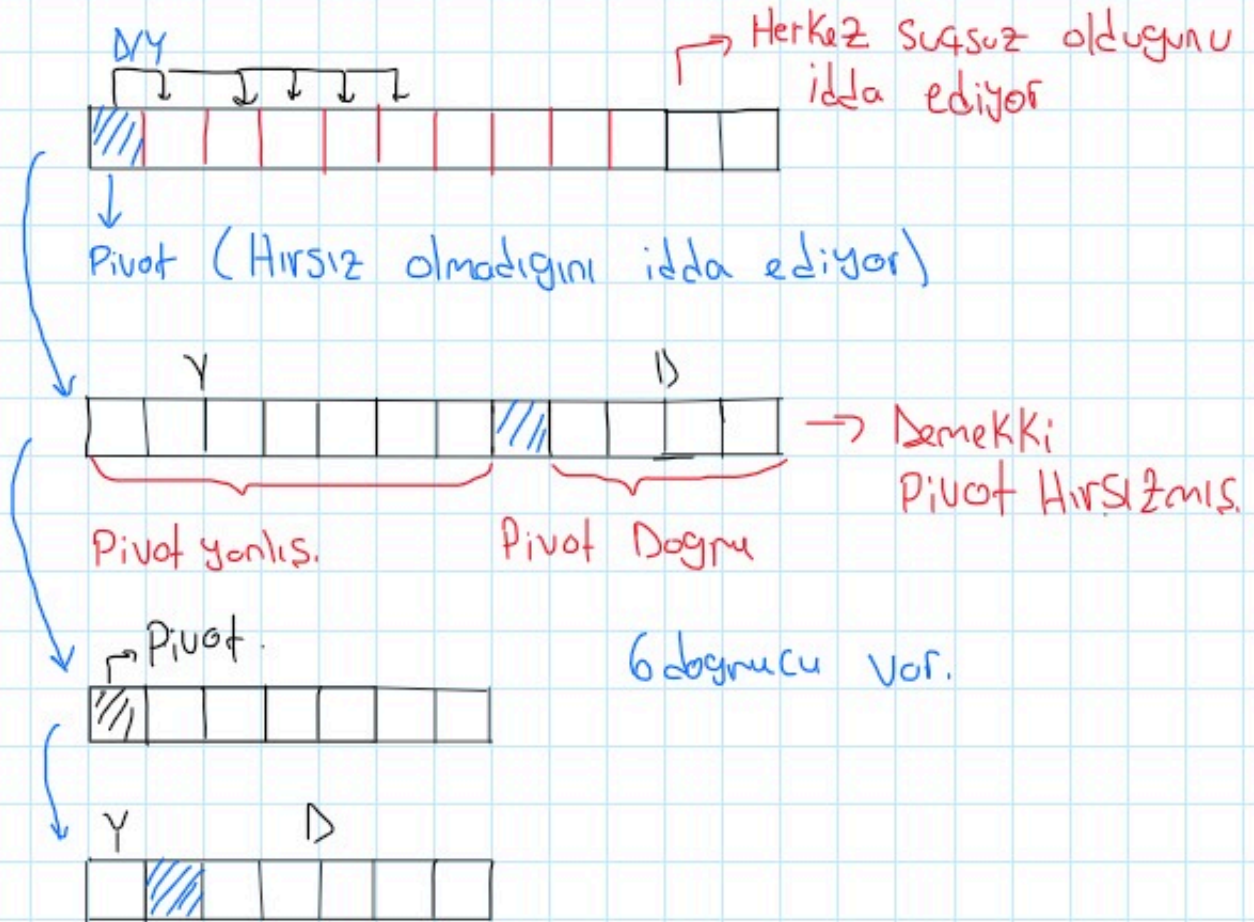 D/Y
Herkez suçsuz olduğunu
idda ediyor
Pivot (Hırsız olmadığını idda ediyor)
Y
D
Demekki
Pivot Hırsızmış.
Pivot yanlış.
Pivot Doğru
Pivot.
6 doğrucu var.
Y
D